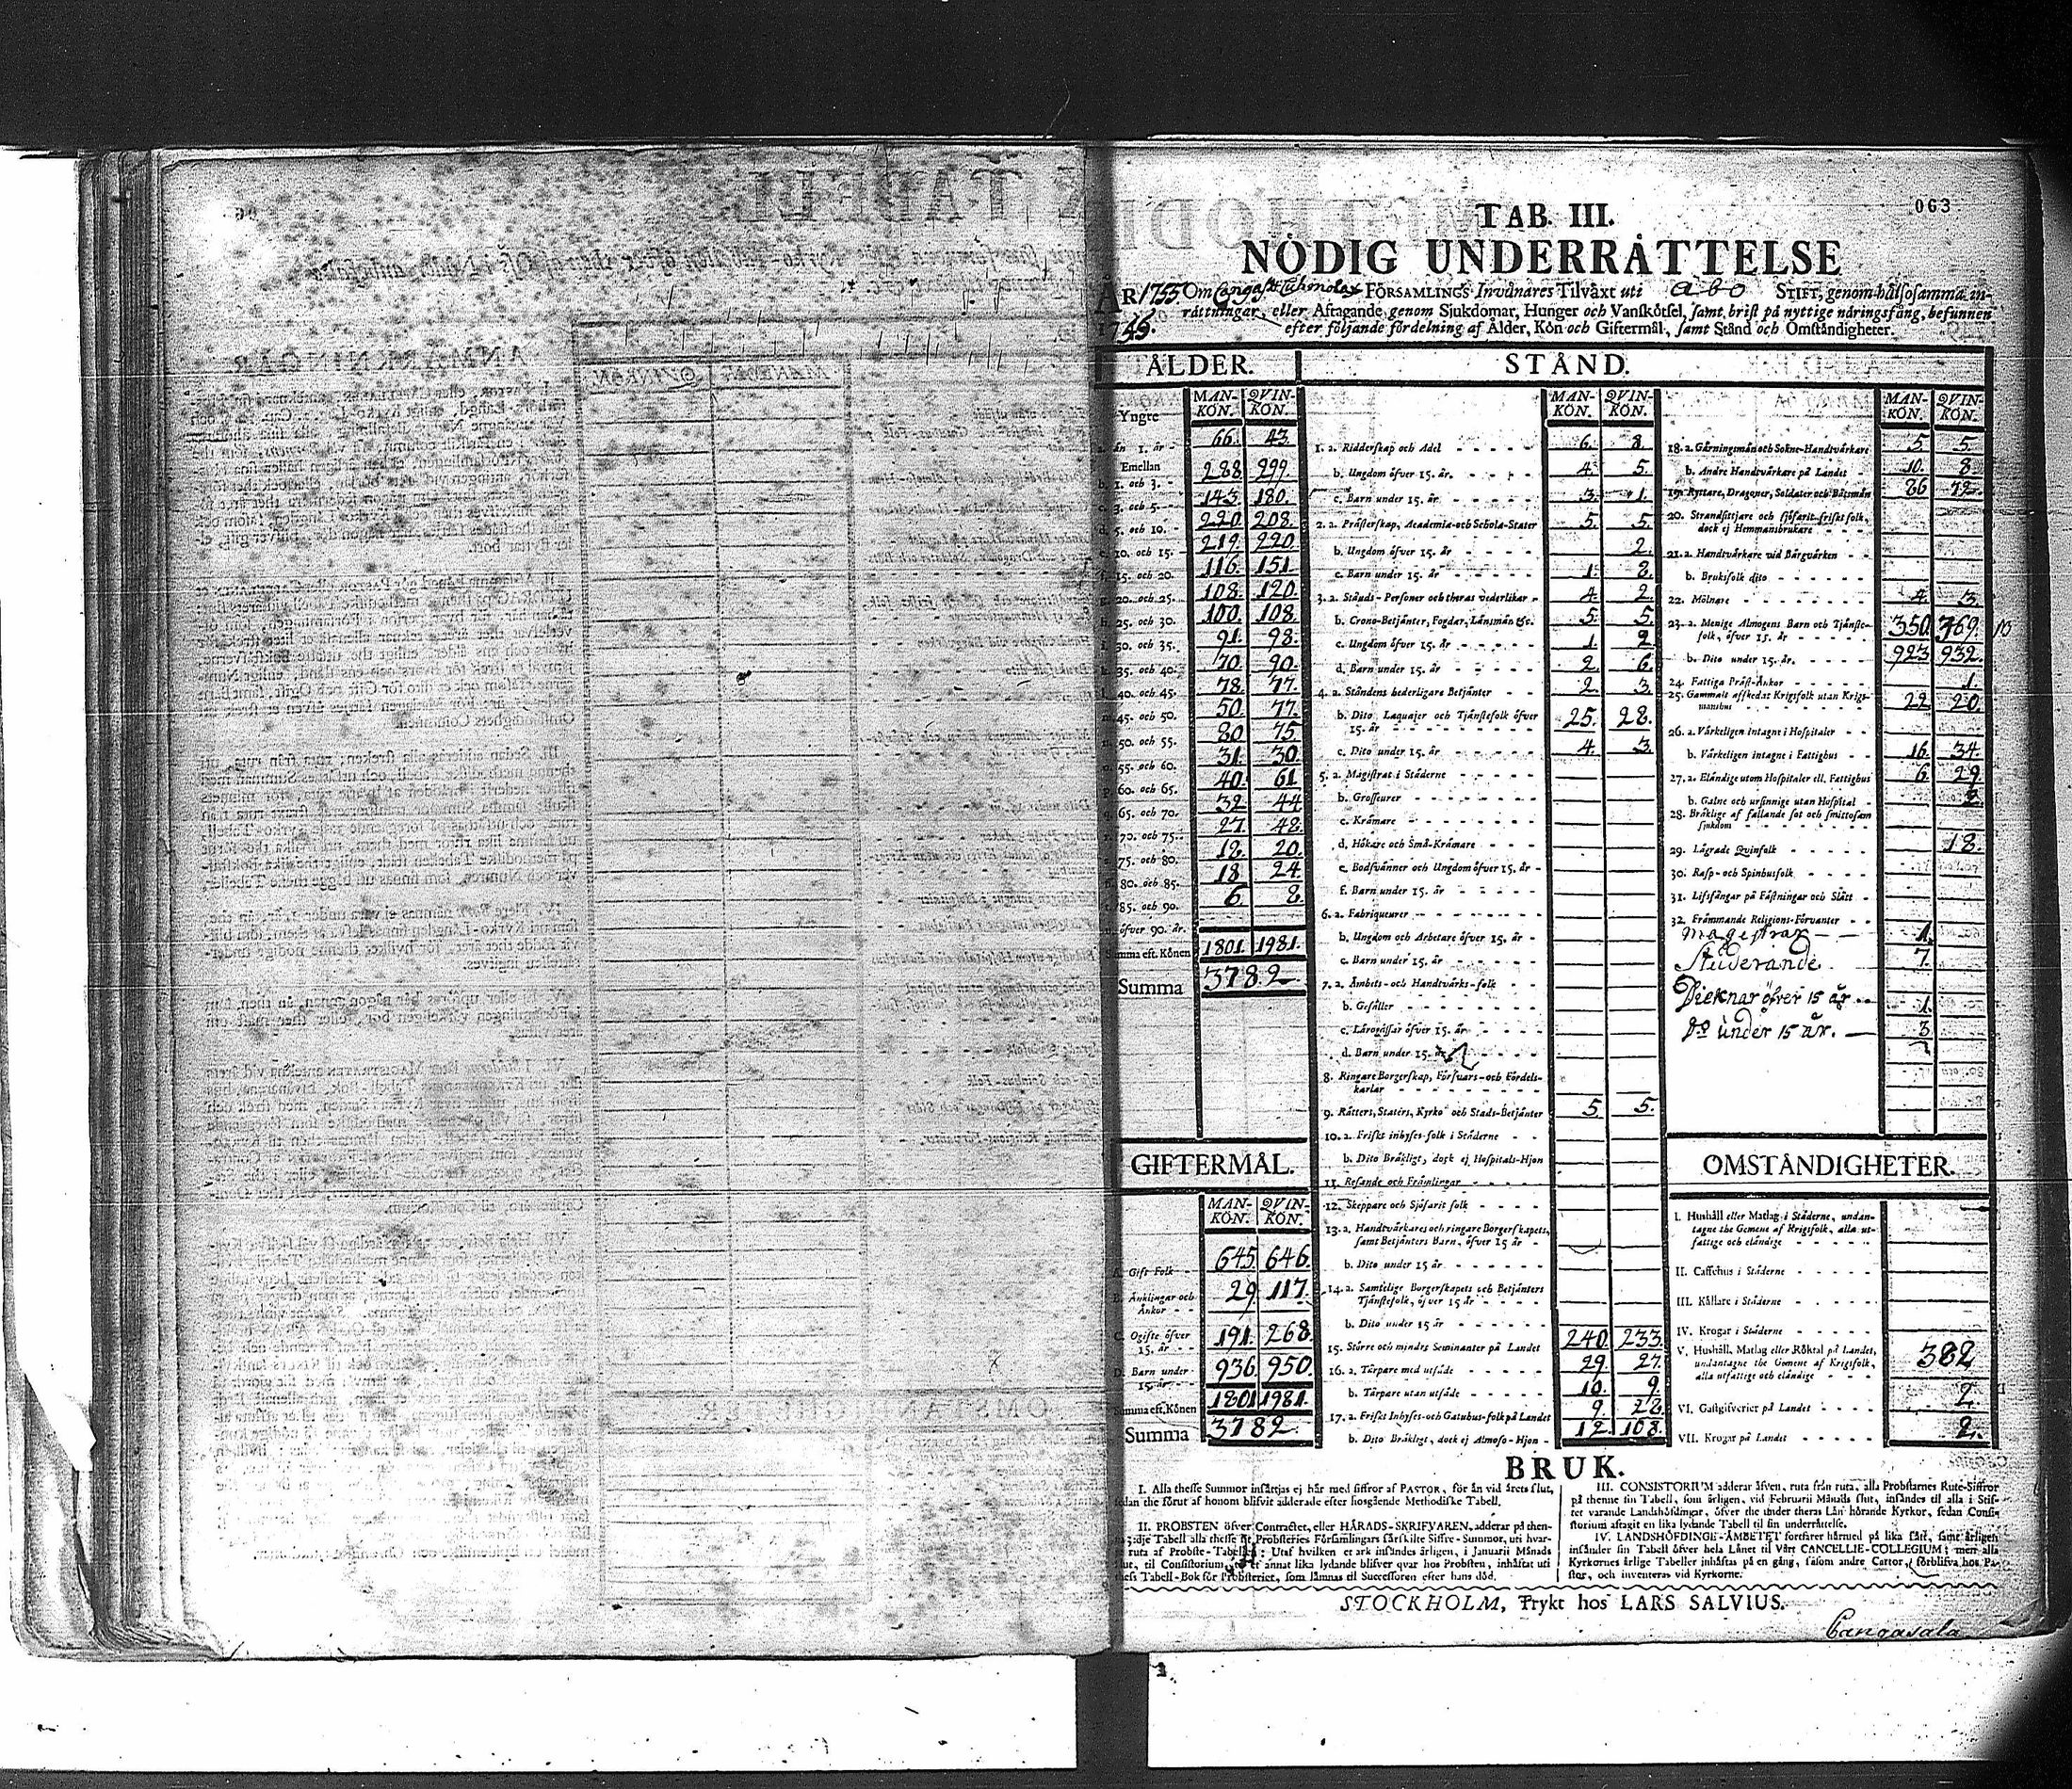 063
TAB. III.
NÖDIG UNDERRÄTTELSE
ÅR 1755 Om FÖRSAMLINGS Invånares Tilväxt uti Åbo STIFT, genom hälsosamma in-
rättningar, eller Aftagande genom Sjukdomar, Hunger och Vanskötsel, samt brist på nyttige näringsfång, befunnen
efter följande fördelning af Ålder, Kön och Giftermål, samt Stånd och Omständigheter.
ÅLDER.
MAN-KÖN. QVIN-KÖN.
Yngre
än 1. år - 66. 43
Emellan
b. 1. och 3. - 288 299.
c. 3. och 5. - 143 180.
d. 5. och 10. 220. 208.
e. 10. och 15. 219. 220.
f. 15. och 20. 116. 151.
g. 20. och 25. 108. 120.
h. 25. och 30. 100. 108.
i. 30. och 35. 91. 98.
k. 35. och 40. 70 90.
l. 40. och 45. 78. 77.
m. 45. och 50. 50. 77.
n. 50. och 55. 80 75
o. 55. och 60. 31. 30.
p. 60. och 65. 40. 61
q. 65. och 70. 32. 44
r. 70. och 75. 27. 48.
s. 75. och 80. 12. 20.
80. och 85. 18 24
85. och 90. 6. 8.
öfver 90. år.
Summa eft. Könen 1801. 1981.
Summa 3782
GIFTERMÅL.
MAN-KÖN. QVIN-KÖN.
A. Gift Folk - 645. 646.
B. Änklingar och Änkor - 29. 117.
C. Ogifte öfver 15. år - 191. 268.
D. Barn under 15. år 936. 950.
Summa eft. Könen 1801 1981.
Summa 3782.
STÅND.
MAN-KÖN. QVIN-KÖN.
1. a. Ridderskap och Adel 6. 8
b. Ungdom öfver 15. år 4. 5.
c. Barn under 15. år 3. 1.
2. a. Prästerskap, Academiæ och Schola-Stater 5. 5.
b. Ungdom öfver 15. år 2.
c. Barn under 15. år 1. 8.
3. a. Stånds-Personer och theras vederlikar - 4. 2.
b. Crono-Betjänter, Fogdar, Länsmän &c. 5. 5.
c. Ungdom öfver 15. år 1. 2.
d. Barn under 15. år 2. 6.
4. a. Ståndens hederligare Betjänter 2. 3.
b. Dito Laquajer och Tjänstefolk öfver 15. år 25. 28.
c. Dito under 15. år 4. 3.
5. a. Magistrat i Städerne
b. Grosseurer
c. Krämare
d. Hökare och Små-Krämare
e. Bodsvänner och Ungdom öfver 15. år -
f. Barn under 15. år
6. a. Fabriqueurer
b. Ungdom och Arbetare öfver 15. år -
c. Barn under 15. år
7. a. Ämbets- och Handtvärks-folk
b. Gesäller
c. Lärogåssar öfver 15. år
d. Barn under 15. år
8. Ringare Borgerskap, Försvars- och Fördels-
karlar
9. Rätters, Staters, Kyrko- och Stads-Betjänter 5. 5.
10. a. Friskt inhyses-folk i Städerne
b. Dito Bräkligt, dock ej Hospitals-Hjon
11. Resande och Främlingar
12. Skeppare och Sjöfarit folk
13. a. Handtvärkares och ringare Borgerskapets,
samt Betjänters Barn, öfver 15 år
b. Dito under 15 år
14. a. Samtelige Borgerskapets och Betjänters
Tjänstefolk, öfver 15 år
b. Dito under 15 år
15. Större och mindre Seminanter på Landet 240. 233.
16. a. Tårpare med utsäde 29. 27.
b. Tårpare utan utsäde 10. 9.
17. a. Friskt Inhyses- och Gatuhus-folk på Landet 9. 28.
b. Dito Bräkligt, dock ej Almoso-Hjon - 12. 108.
MAN-KÖN. QVIN-KÖN.
18. a. Gärningsmän och Sokne-Handtvärkare 5. 5.
b. Andre Handtvärkare på Landet 10. 8.
19. Ryttare, Dragoner, Soldater och Båtsmän 86 72.
20. Strandsittjare och sjöfarit friskt folk,
dock ej Hemmansbrukare
21. a. Handtvärkare vid Bärgvärken
b. Bruksfolk dito
22. Mölnare 4. 3.
23. a. Menige Almogens Barn och Tjänste-
folk, öfver 15. år 350. 369.
b. Dito under 15. år. 923 932.
24. Fattiga Präst-Änkor 1.
25. Gammalt afskedat Krigsfolk utan Krigs-
manshus 22 20.
26. a. Värkeligen intagne i Hospitaler
b. Värkeligen intagne i Fattighus 16. 34.
27. a. Eländige utom Hospitaler ell. Fattighus 6. 29.
b. Galne och ursinnige utan Hospital
28. Bräklige af fallande sot och smittosam
sjukdom
29. Lägrade Qvinfolk 18.
30. Rasp- och Spinhusfolk
31. Lifsfångar på Fästningar och Slått
32. Främmande Religions-Förvanter
1.
Studerande 7.
Dieknar öfver 15 år. 1.
Do under 15 år. 3.
OMSTÄNDIGHETER.
I. Hushåll eller Matlag i Städerne, undan-
tagne the Gemene af Krigsfolk, alla ut-
fattige och eländige
II. Caffehus i Städerne
III. Källare i Städerne
IV. Krogar i Städerne
V. Hushåll, Matlag eller Röktal på Landet,
undantagne the Gemene af Krigsfolk,
alla utfattige och eländige 382
VI. Gästgifverier på Landet 2.
VII. Krogar på Landet 2.
BRUK.
I. Alla thesse Summor insättjas ej här med siffror af PASTOR, för än vid årets slut,
sedan the förut af honom blifvit adderade efter hosgående Methodiske Tabell.
II. PROBSTEN öfver Contractet, eller HÄRADS-SKRIFVAREN, adderar på then-
tredje Tabell alla thesse Probsteries Församlingars särskilte Siffre-Summor, uti hvar
ruta af Probste-Tabellen: Utaf hvilken et ark insändes årligen, i Januarii Månads
slut, til Consistorium, annat lika lydande blifver qvar hos Probsten, inhäftat uti
thess Tabell-Bok för Probsteriet, som lämnas til Successoren efter hans död.
III. CONSISTORIUM adderar äfven, ruta från ruta, alla Probstarnes Rute-Siffror
på thenne sin Tabell, som årligen, vid Februarii Månads slut, insändes til alla i Stif-
tet varande Landshöfdingar, öfver the under theras Län hörande Kyrkor, sedan Consi-
storium aftagit en lika lydande Tabell til sin underrättelse.
IV. LANDSHÖFDINGE-ÄMBETET fortfarer härmed på lika sätt, samt årligen
insänder sin Tabell öfver hela Länet til Vårt CANCELLIE-COLLEGIUM; men alla
Kyrkornes årlige Tabeller inhäftas på en gång, såsom andre Cartor, förblifva hos Pa-
stor, och inventeras vid Kyrkorne.
STOCKHOLM, Trykt hos LARS SALVIUS.
Cangasala